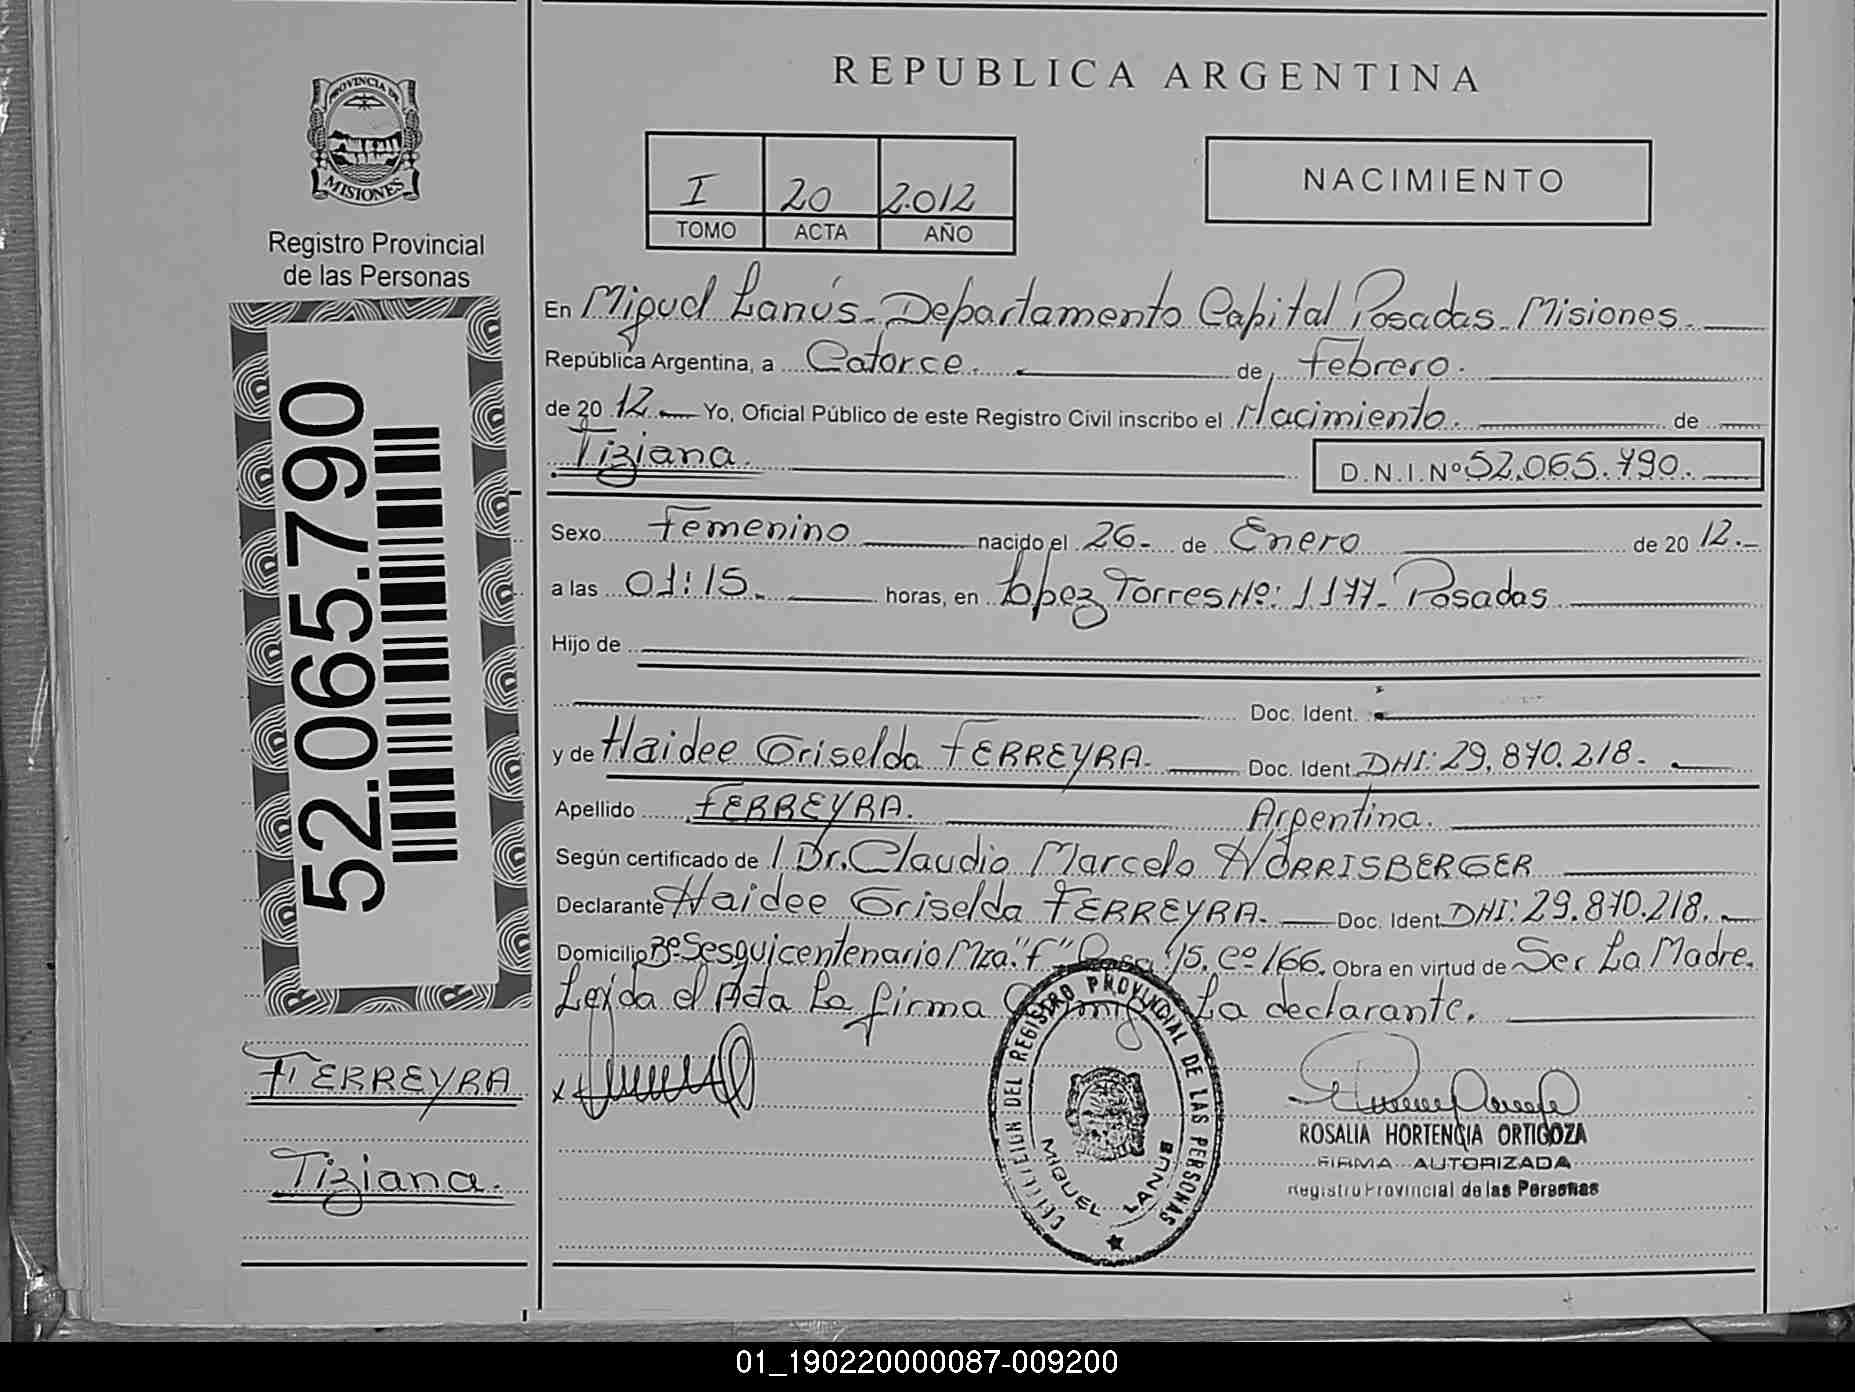 PROVINCIA DE
MISIONES
Registro Provincial
de las Personas
52.065.790
FERREYRA
Tiziana.
REPUBLICA ARGENTINA
I 20 2.012
TOMO ACTA AÑO
NACIMIENTO
En Miguel Lanús - Departamento Capital Posadas - Misiones.
República Argentina, a Catorce. de Febrero.
de 20 12 Yo, Oficial Público de este Registro Civil inscribo el Nacimiento. de
Tiziana. D.N.I.Nº 52.065.790.
Sexo Femenino nacido el 26 - de Enero de 20 12.-
a las 01:15. horas, en López Torres Nº: 1177- Posadas
Hijo de
Doc. Ident.
y de Haidee Griselda FERREYRA. Doc. Ident. DNI: 29.870.218.
Apellido FERREYRA. Argentina.
Según certificado de Dr. Claudio Marcelo NORRISBERGER
Declarante Haidee Griselda FERREYRA. Doc. Ident. DNI: 29.870.218.
Domicilio Bº Sesquicentenario Mza. "F" Casa 15. Cº 166. Obra en virtud de Ser La Madre.
Leída el Acta La firma La declarante.
x
REGISTRO PROVINCIAL DE LAS PERSONAS
MIGUEL LANUS
ROSALIA HORTENCIA ORTIGOZA
FIRMA AUTORIZADA
Registro Provincial de las Personas
01_190220000087-009200